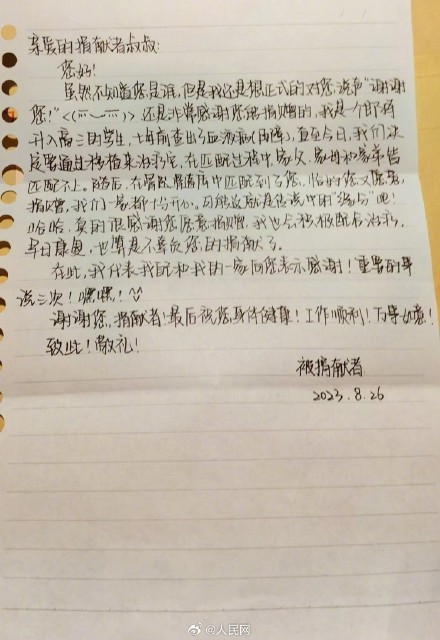 亲爱的捐献者叔叔:
您好!
虽然不知道您是谁,但是我还是想正式的对您说声"谢谢
您!"<(￣︶￣)>还是非常感谢您能捐赠的,我是一个即将
升入高三的学生,七年前查出了血液病(再障),直至今日,我们决
定要通过移植来治疗它,在匹配过程中家父、家母和弟弟皆
匹配不上。随后,在骨髓库中匹配到了您,恰好您又愿意
捐赠,我们一家都十分开心,可能这就是传说中的"缘分"吧!
哈哈,真的很感谢您愿意捐赠,我也会积极配合治疗,
早日康复,也算是不辜负您的捐献了。
在此,我代表我和我的一家向您表示感谢!重要的事
说三次!嘿嘿!
谢谢您,捐献者!最后祝您身体健康!工作顺利!万事如意!
致此!敬礼!
被捐献者
2023.8.26
@人民网